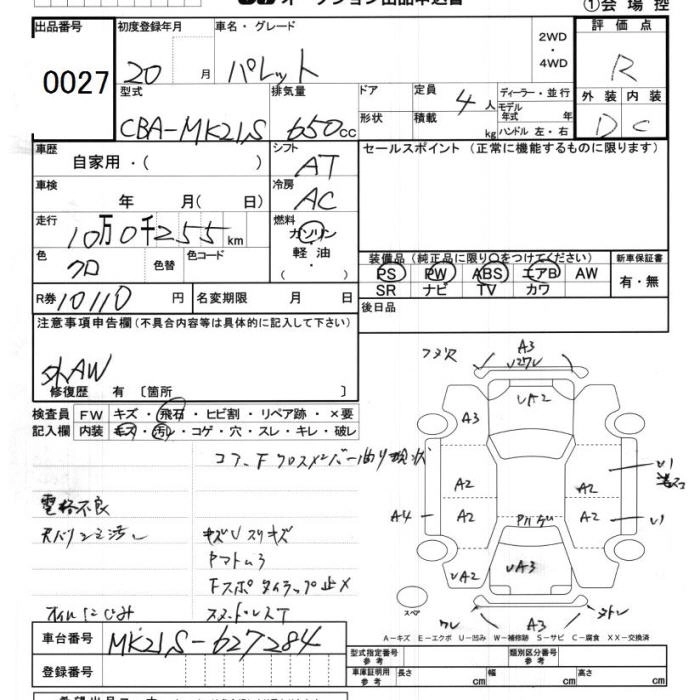 オークション出品申込書 ①会場控
出品番号 初度登録年月 車名・グレード 2WD・4WD 評価点
0027 20 月 パレット R
型式 排気量 ドア 定員 4人 ディーラー・並行 外装 内装
CBA-MK21S 650cc 形状 積載 kg モデル年式 年 ハンドル 左・右 D C
車歴 自家用・( ) シフト AT セールスポイント (正常に機能するものに限ります)
車検 年 月( 日) 冷房 AC
走行 10万0千255km 燃料 ガソリン・軽油・( )
色 クロ 色替 色コード 装備品(純正品に限り○をつけてください) 新車保証書
PS PW ABS エアB AW 有・無
SR ナビ TV カワ
R券 10110円 名変期限 月 日 後日品
注意事項申告欄(不具合内容等は具体的に記入して下さい)
外AW
修復歴 有〔箇所 〕
検査員 FW キズ・飛石・ヒビ割・リペア跡・×要
記入欄 内装 キズ・汚レ・コゲ・穴・スレ・キレ・破レ
コアS.Fクロスメンバー曲り現状
電格不良
キズUスリキズ
Fスポ タイラップ止×
オイルにじみ
A3
UA2
A3
A2 A2
A4 A2 A2 U1
UA2 UA3
A3
スペア
A-キズ E-エクボ U-凹み W-補修跡 S-サビ C-腐食 XX-交換済
車台番号 MK21S-627284
型式指定番号 参考 類別区分番号 参考
登録番号 車庫証明用 参考 長さ cm 幅 cm 高さ cm